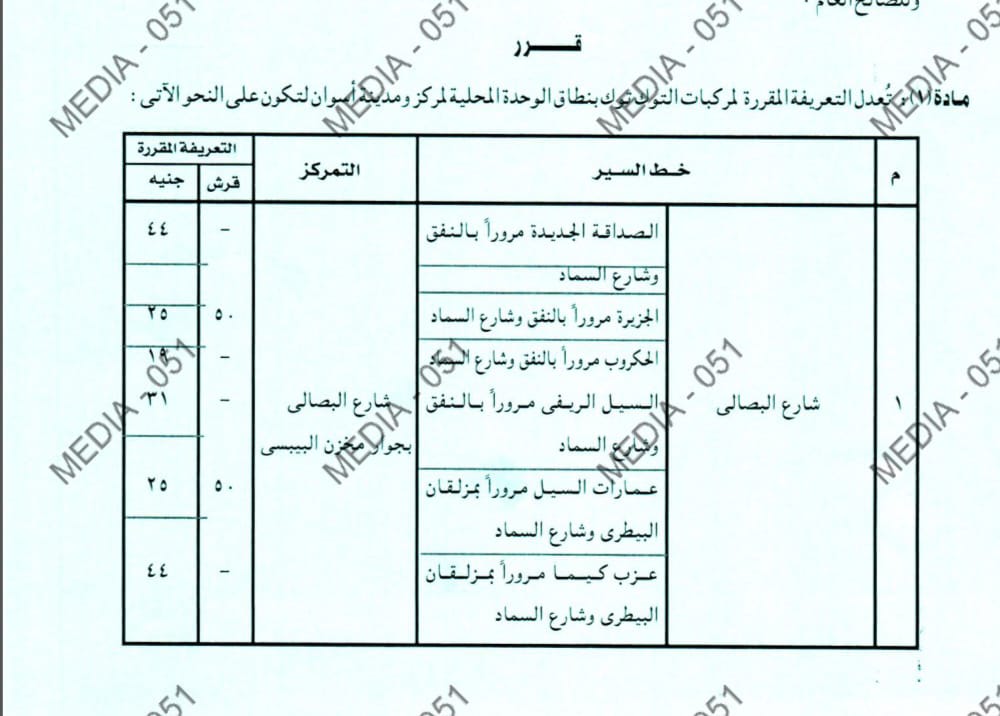 وللصالح العام .
قـــــرر
مادة (١) : تُعدل التعريفة المقررة لمركبات التوك توك بنطاق الوحدة المحلية لمركز ومدينة أسوان لتكون على النحو الآتى :
م خط السير التمركز التعريفة المقررة
قرش جنيه
الصداقة الجديدة مروراً بالنفق - ٤٤
وشارع السماد
الجزيرة مروراً بالنفق وشارع السماد ٥٠ ٢٥
الحكروب مروراً بالنفق وشارع السماد - ١٩
١ شارع البصالى السيل الريفى مروراً بالنفق شارع البصالى - ٣١
وشارع السماد بجوار مخزن البيبسى
عمارات السيل مروراً بمزلقان ٥٠ ٢٥
البيطرى وشارع السماد
عزب كيما مروراً بمزلقان - ٤٤
البيطرى وشارع السماد
MEDIA - 051
MEDIA - 051
MEDIA - 051
MEDIA - 051
MEDIA - 051
MEDIA - 051
MEDIA - 051
MEDIA - 051
051
051
051
051